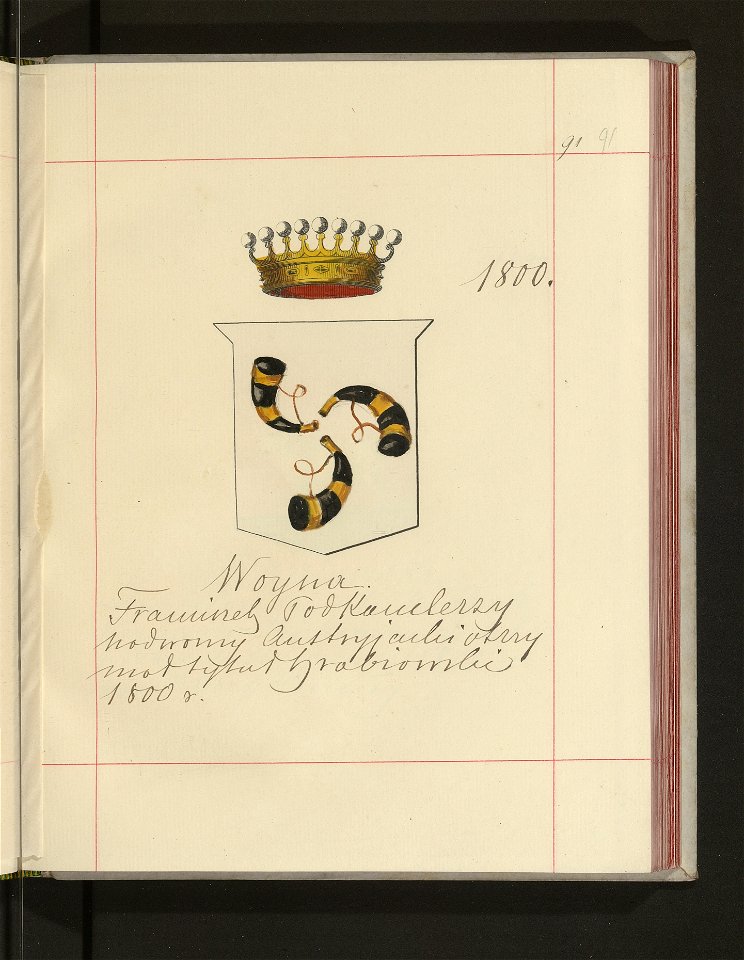 91 91
1800.
Woyna.
Franciszek Podkomorzy
nadworny Austryjacki otrzy
mał tytuł hrabiowski
1800 r.